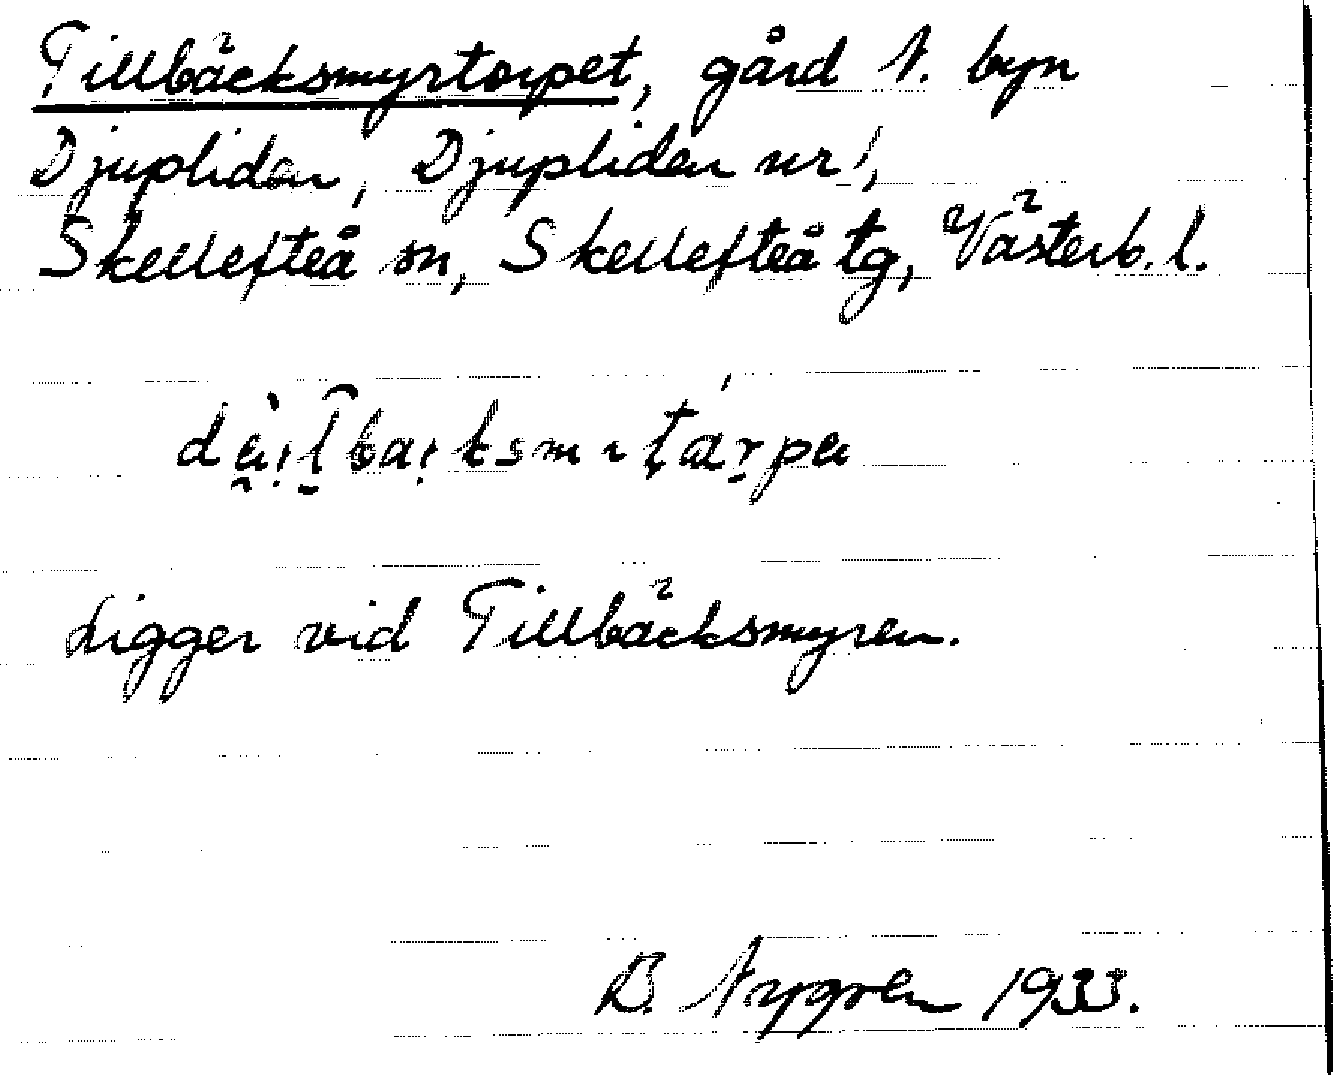 Tillbäcksmyrtorpet, gård N. byn
Djupliden, Djupliden nr 1,
Skellefteå sn, Skellefteå tg, Västerb. l.
Ligger vid Tillbäcksmyren.
B. Nygren 1933.